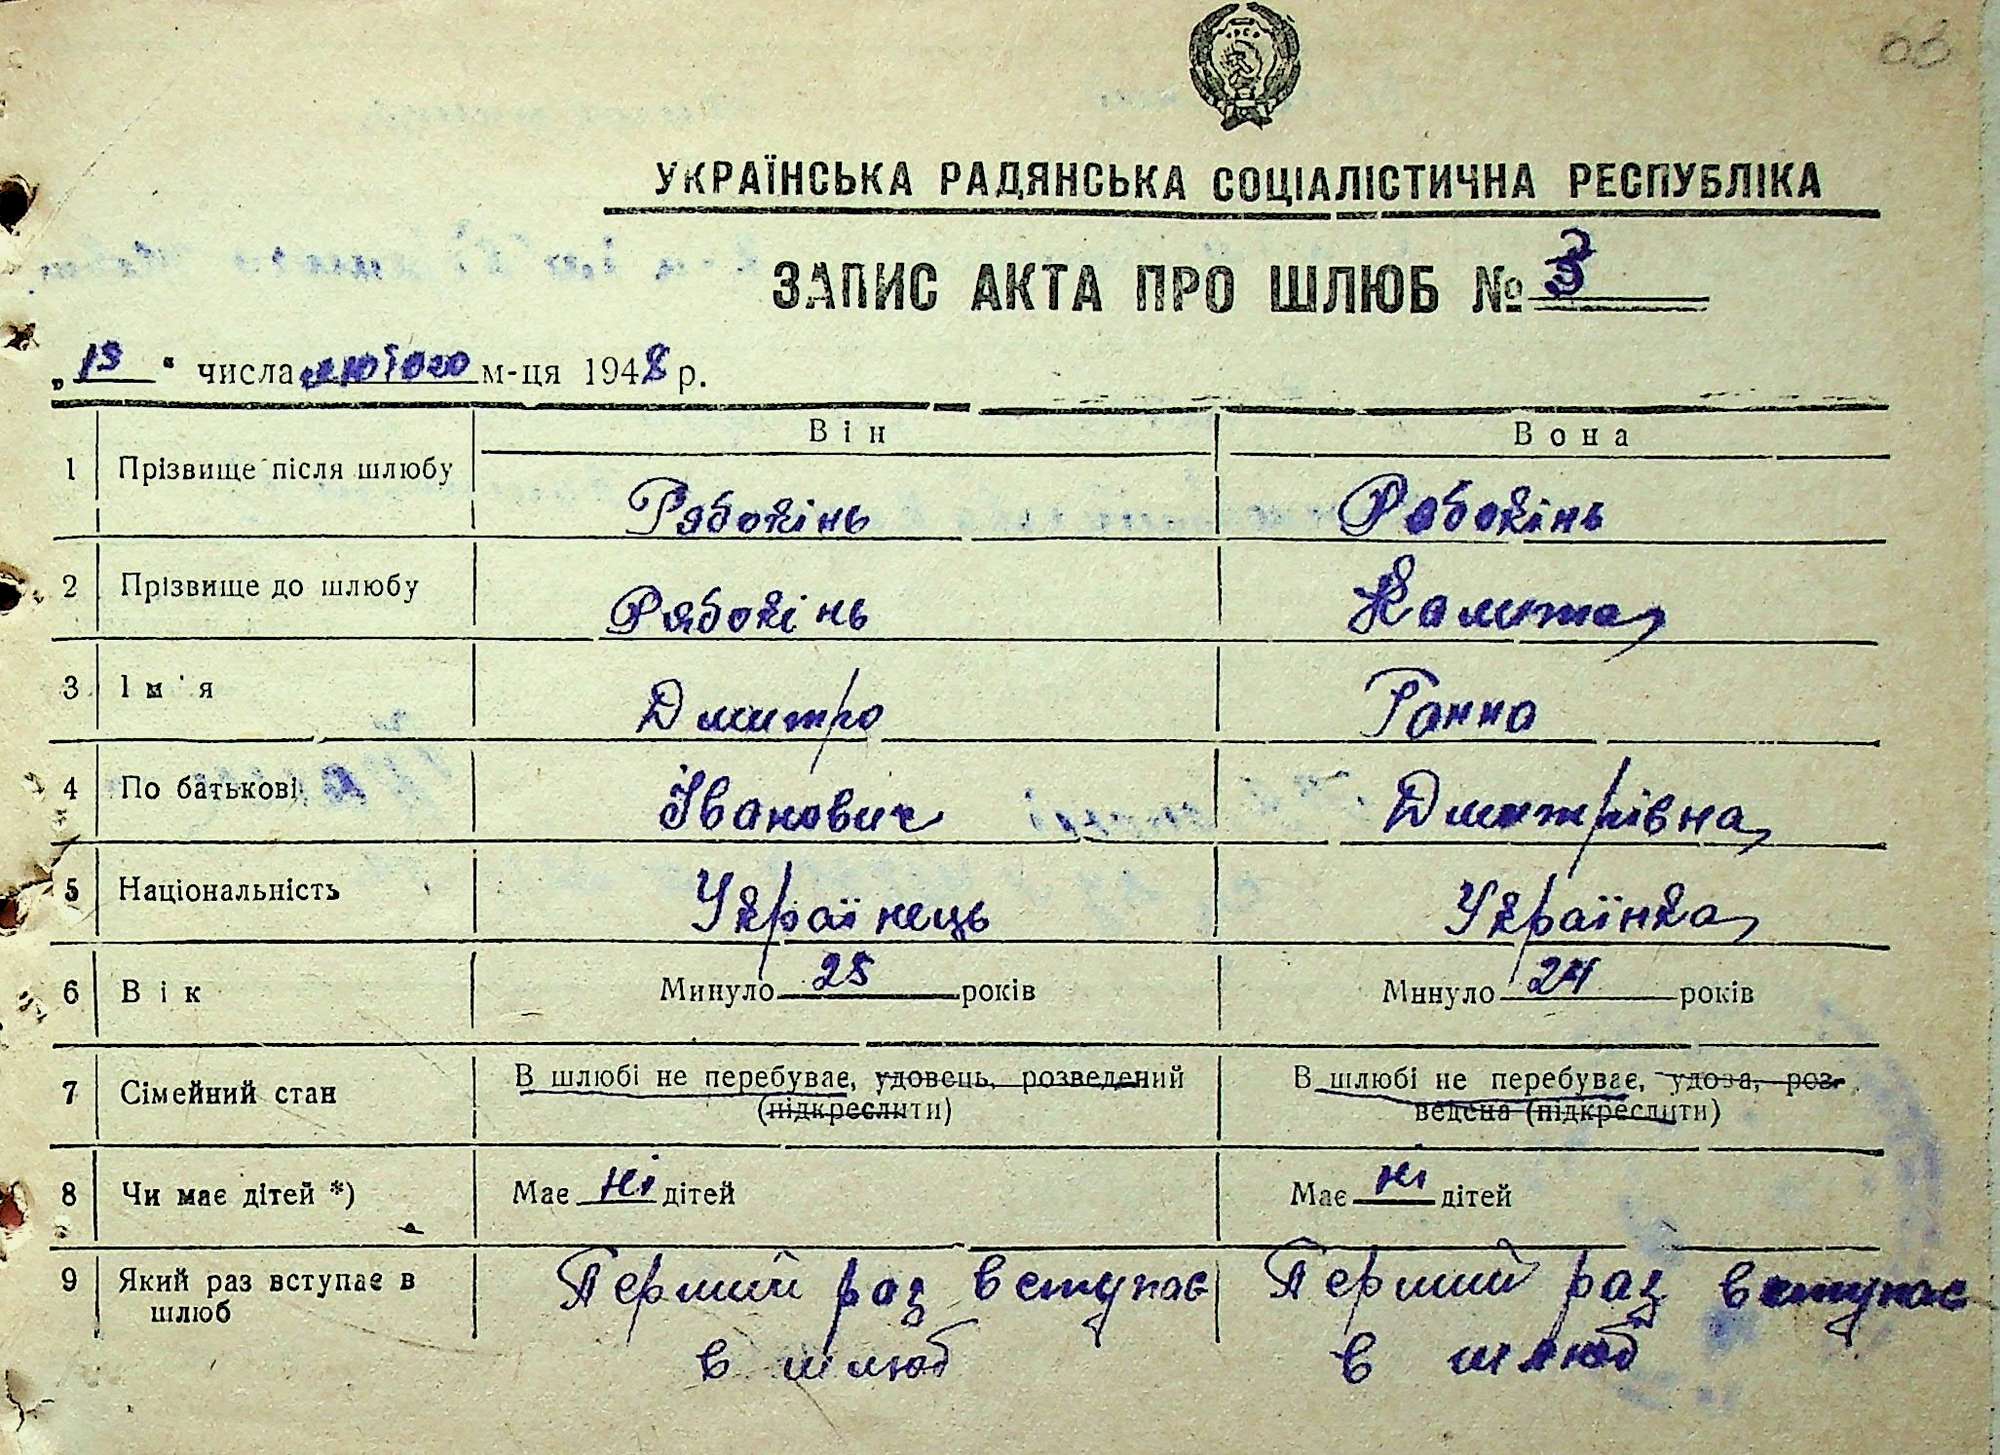 63
УКРАЇНСЬКА РАДЯНСЬКА СОЦІАЛІСТИЧНА РЕСПУБЛІКА
ЗАПИС АКТА ПРО ШЛЮБ № 3
„19“ числа лютого м-ця 1948 р.
Він Вона
1 Прізвище після шлюбу Рябокінь Рабокінь
2 Прізвище до шлюбу Рябокінь Калита
3 Ім'я Дмитро Ганна
4 По батькові Іванович Дмитрівна
5 Національність Українець Українка
6 Вік Минуло 25 років Минуло 24 років
7 Сімейний стан В шлюбі не перебуває, удовець, розведений В шлюбі не перебуває, удова, роз-
(підкреслити) ведена (підкреслити)
8 Чи має дітей *) Має ні дітей Має ні дітей
9 Який раз вступає в Перший раз вступає Перший раз вступає
шлюб в шлюб в шлюб